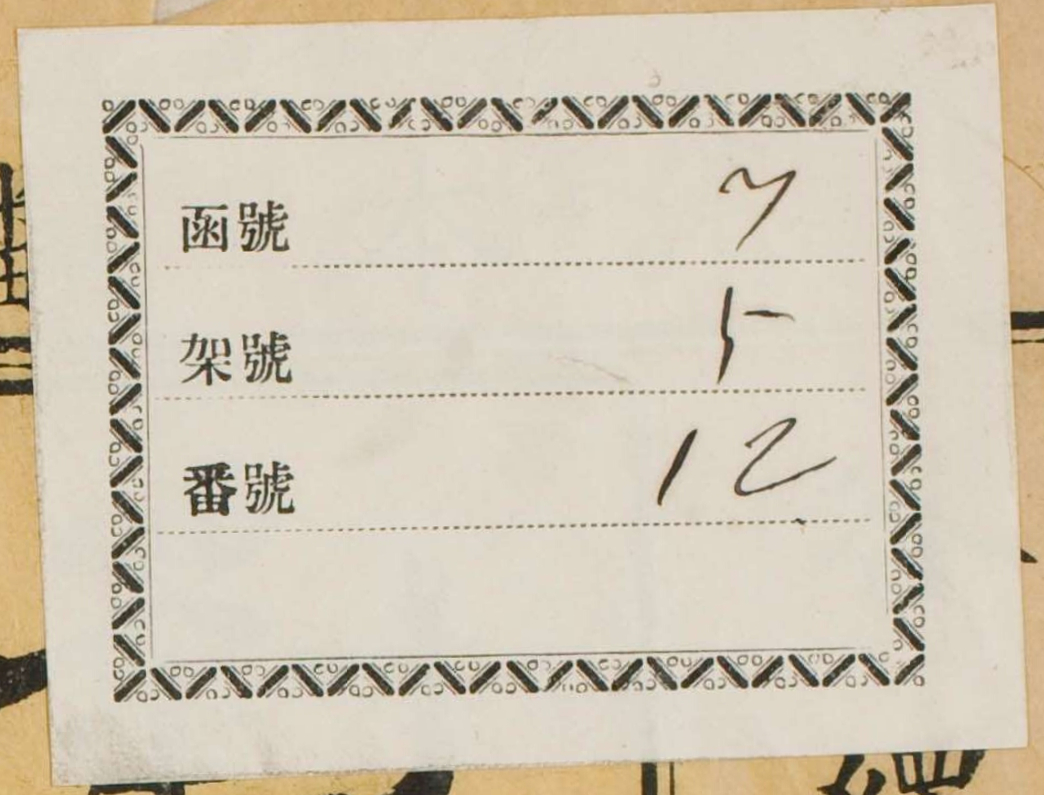 函號 7
架號 5
番號 12